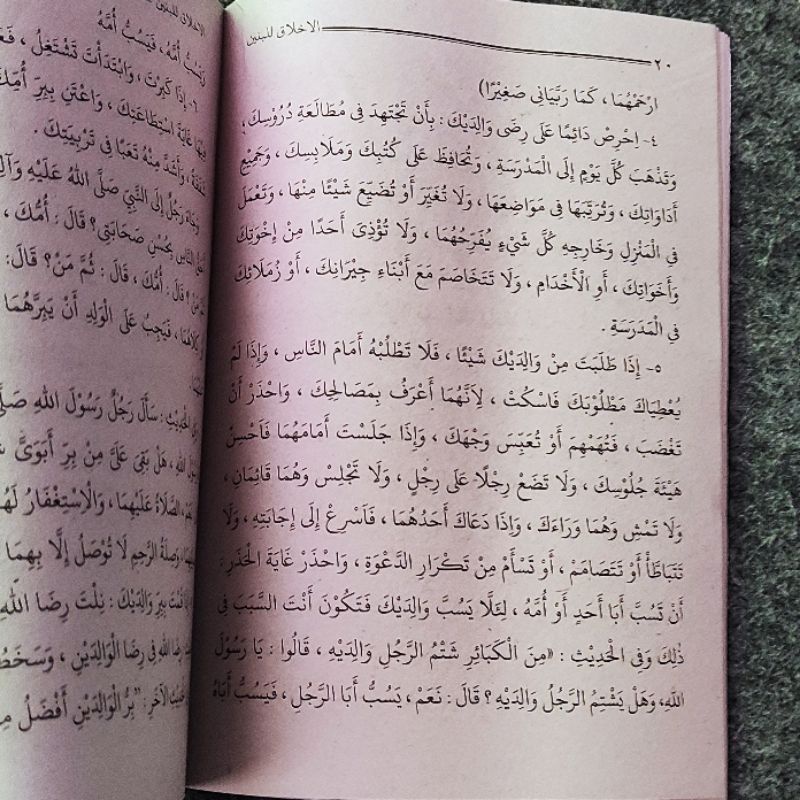 ٢٠ الاخلاق للبنين
ارْحَمْهُمَا، كَمَا رَبَّيَانِي صَغِيْرًا)
٤- اِحْرِصْ دَائِمًا عَلَى رِضَى وَالِدَيْكَ : بِأَنْ تَجْتَهِدَ فِى مُطَالَعَةِ دُرُوْسِكَ،
وَتَذْهَبَ كُلَّ يَوْمٍ إِلَى الْمَدْرَسَةِ، وَتُحَافِظَ عَلَى كُتُبِكَ وَمَلَابِسِكَ، وَجَمِيْعِ
أَدَوَاتِكَ، وَتُرَتِّبَهَا فِى مَوَاضِعِهَا، وَلَا تُغَيِّرَ أَوْ تُضَيِّعَ شَيْئًا مِنْهَا، وَتَعْمَلَ
فِي الْمَنْزِلِ وَخَارِجِهِ كُلَّ شَيْءٍ يُفَرِّحُهُمَا، وَلَا تُؤْذِىَ أَحَدًا مِنْ إِخْوَتِكَ
وَأَخَوَاتِكَ، أَوِ الْأَخْدَامِ، وَلَا تَتَخَاصَمَ مَعَ أَبْنَاءِ جِيْرَانِكَ، أَوْ زُمَلَائِكَ
فِي الْمَدْرَسَةِ.
٥- إِذَا طَلَبْتَ مِنْ وَالِدَيْكَ شَيْئًا، فَلَا تَطْلُبْهُ أَمَامَ النَّاسِ، وَإِذَا لَمْ
يُعْطِيَاكَ مَطْلُوْبَكَ فَاسْكُتْ، لِأَنَّهُمَا أَعْرَفُ بِمَصَالِحِكَ، وَاحْذَرْ أَنْ
تَغْضَبَ، فَتُهَمْهِمَ أَوْ تُعَبِّسَ وَجْهَكَ، وَإِذَا جَلَسْتَ أَمَامَهُمَا فَاَحْسِنْ
هَيْئَةَ جُلُوْسِكَ، وَلَا تَضَعْ رِجْلًا عَلَى رِجْلٍ، وَلَا تَجْلِسْ وَهُمَا قَائِمَانِ،
وَلَا تَمْشِ وَهُمَا وَرَاءَكَ، وَإِذَا دَعَاكَ أَحَدُهُمَا، فَاَسْرِعْ إِلَى إِجَابَتِهِ، وَلَا
تَتَبَاطَأْ أَوْ تَتَصَامَمْ، أَوْ تَسْأَمْ مِنْ تَكْرَارِ الدَّعْوَةِ، وَاحْذَرْ غَايَةَ الْحَذَرِ:
أَنْ تَسُبَّ أَبَا أَحَدٍ أَوْ أُمَّهُ، لِئَلَّا يَسُبَّ وَالِدَيْكَ فَتَكُوْنَ أَنْتَ السَّبَبَ فِى
ذٰلِكَ وَفِى الْحَدِيْثِ : «مِنَ الْكَبَائِرِ شَتْمُ الرَّجُلِ وَالِدَيْهِ، قَالُوا : يَا رَسُوْلَ
اللهِ، وَهَلْ يَشْتِمُ الرَّجُلُ وَالِدَيْهِ؟ قَالَ : نَعَمْ، يَسُبُّ أَبَا الرَّجُلِ، فَيَسُبُّ أَبَاهُ
الاخلاق للبنين
وَيَسُبُّ أُمَّهُ، فَيَسُبُّ أُمَّهُ
٦- إِذَا كَبِرْتَ، وَابْتَدَأْتَ تَشْتَغِلُ،
غَايَةَ اسْتِطَاعَتِكَ، وَاعْتَنِ بِبِرِّ أُمِّكَ
وَأَشَدُّ مِنْهُ تَعَبًا فِى تَرْبِيَتِكَ.
رَجُلٌ إِلَى النَّبِيِّ صَلَّى اللهُ عَلَيْهِ وَآلِهِ
النَّاسِ بِحُسْنِ صَحَابَتِى؟ قَالَ: أُمُّكَ،
قَالَ: أُمُّكَ، قَالَ: ثُمَّ مَنْ؟ قَالَ:
فَيَجِبُ عَلَى الْوَلَدِ أَنْ يَبِرَّهُمَا
الْحَدِيْثِ: سَأَلَ رَجُلٌ رَسُوْلَ اللهِ
اللهِ، هَلْ بَقِىَ عَلَيَّ مِنْ بِرِّ أَبَوَىَّ
الصَّلَاةُ عَلَيْهِمَا، وَالْاِسْتِغْفَارُ لَهُمَا
وَصِلَةُ الرَّحِمِ لَا تُوْصَلُ إِلَّا بِهِمَا
بِبِرِّ وَالِدَيْكَ: نِلْتَ رِضَا اللهِ
اللهِ فِى رِضَا الْوَالِدَيْنِ، وَسَخَطُ
الْآخَرِ: "بِرُّ الْوَالِدَيْنِ أَفْضَلُ